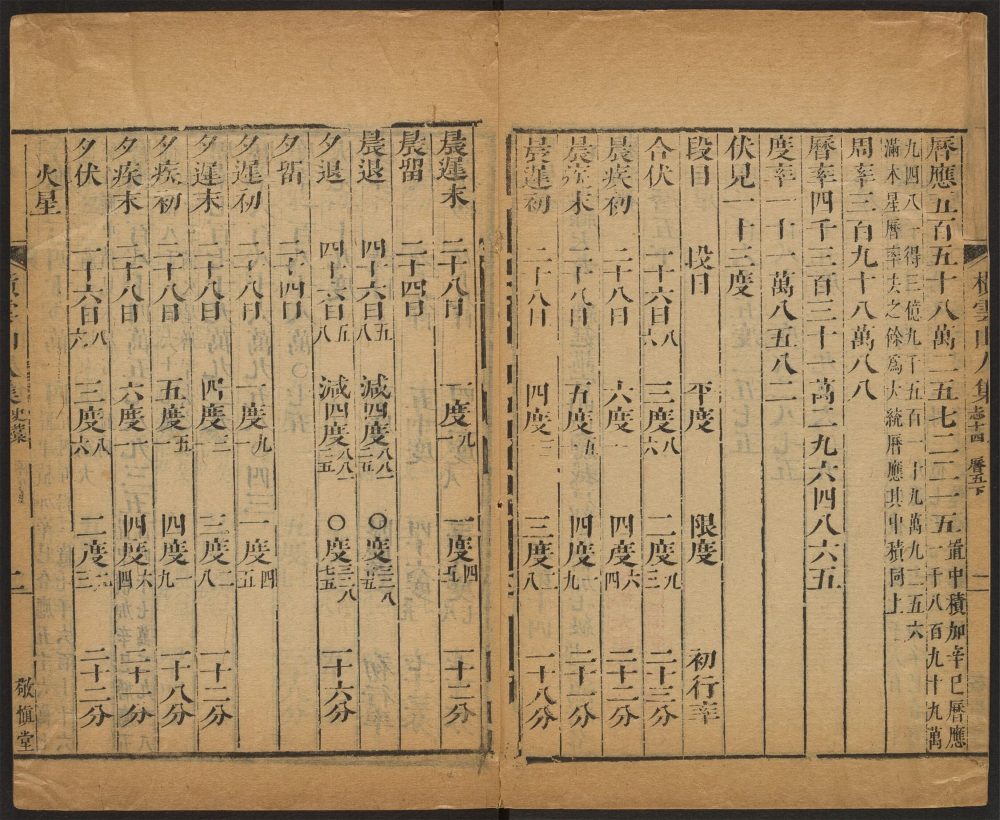 橫雲山人集 志十四 曆五下
曆應五百五十八萬二五七二二一五
置中積加辛巳曆應一千八百九十九萬
九四八一得三億九千五百一十九萬九三五六
滿木星曆率去之餘為大統曆應其中積同上
周率三百九十八萬八八
曆率四千三百三十一萬二九六四八六五
度率一十一萬八五八二
伏見一十三度
段目 段日 平度 限度 初行率
合伏 一十六日八六 三度八六 二度九三 二十三分
晨疾初 二十八日 六度一一 四度六四 二十二分
晨疾末 二十八日 五度五一 四度一九 二十一分
晨遲初 二十八日 四度三一 三度二八 一十八分
晨遲末 二十八日 一度九一 一度四五 一十二分
晨留 二十四日
晨退 四十六日五八 減四度八八一二五 〇度三二八七五
夕退 四十六日五八 減四度八八一二五 〇度三二八七五 一十六分
夕留 二十四日
夕遲初 二十八日 一度九一 一度四五
夕遲末 二十八日 四度三一 三度二八 一十二分
夕疾初 二十八日 五度五一 四度一九 一十八分
夕疾末 二十八日 六度一一 四度六四 二十一分
夕伏 一十六日八六 三度八六 二度九三 二十二分
火星
橫雲山人集 史藁 二
敬慎堂